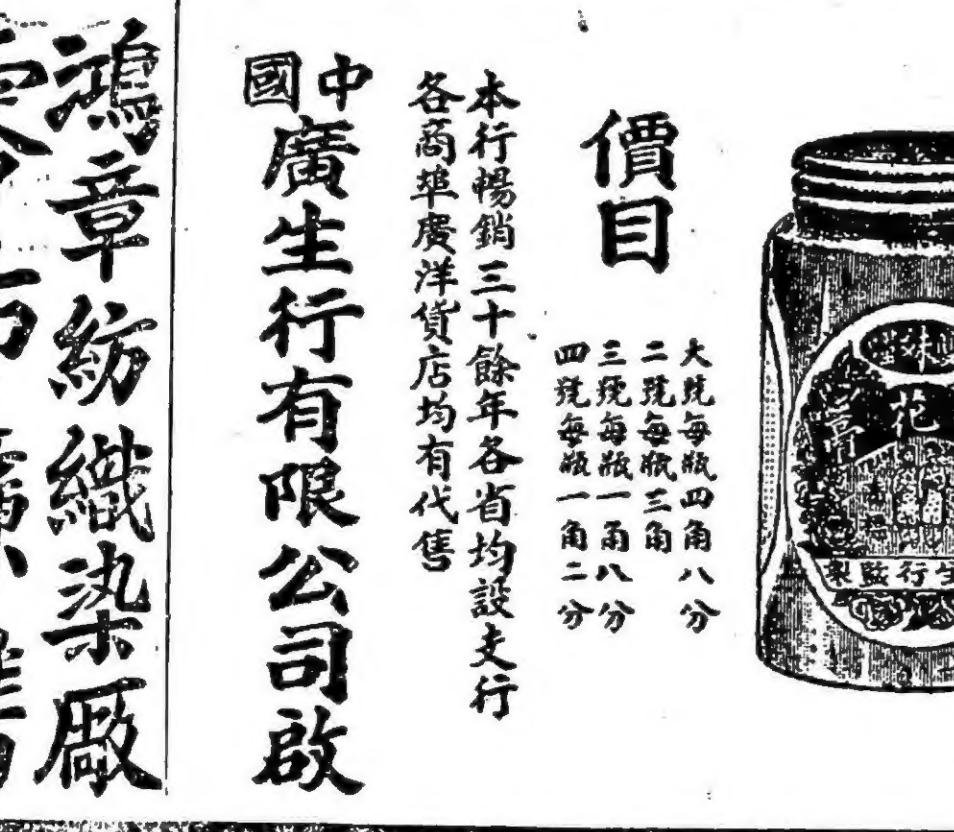 花
生行監製
價目
大號每瓶四角八分
二號每瓶三角
三號每瓶一角八分
四號每瓶一角二分
本行暢銷三十餘年各省均設支行
各商埠廣洋貨店均有代售
中國
廣生行有限公司啟
鴻章紡織染廠